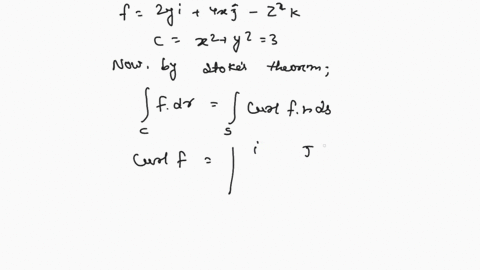 f = 2yi + 4xj - z²k
c = x² + y² = 3
Now. by stokes theorem;
∫c f.dr = ∫s Curl f.n ds
Curl f = | i J